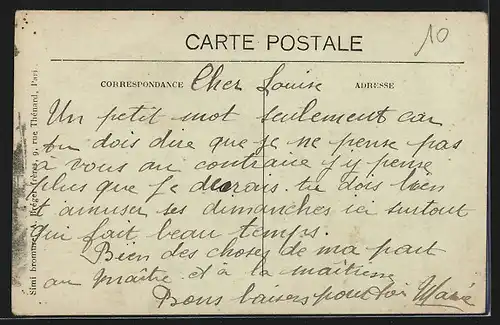 10
CARTE POSTALE
CORRESPONDANCE
ADRESSE
Cher Louise
Un petit mot seulement car
tu dois dire que je ne pense pas
à vous au contraire j'y pense
plus que je devrais. tu dois bien
t'amuser ses dimanches ici surtout
qui fait beau temps.
Bien des choses de ma part
au maître et à la maîtresse
Bons baisers pour toi Marie
Simi bromure Bréger frères, 9, rue Thénard, Pari